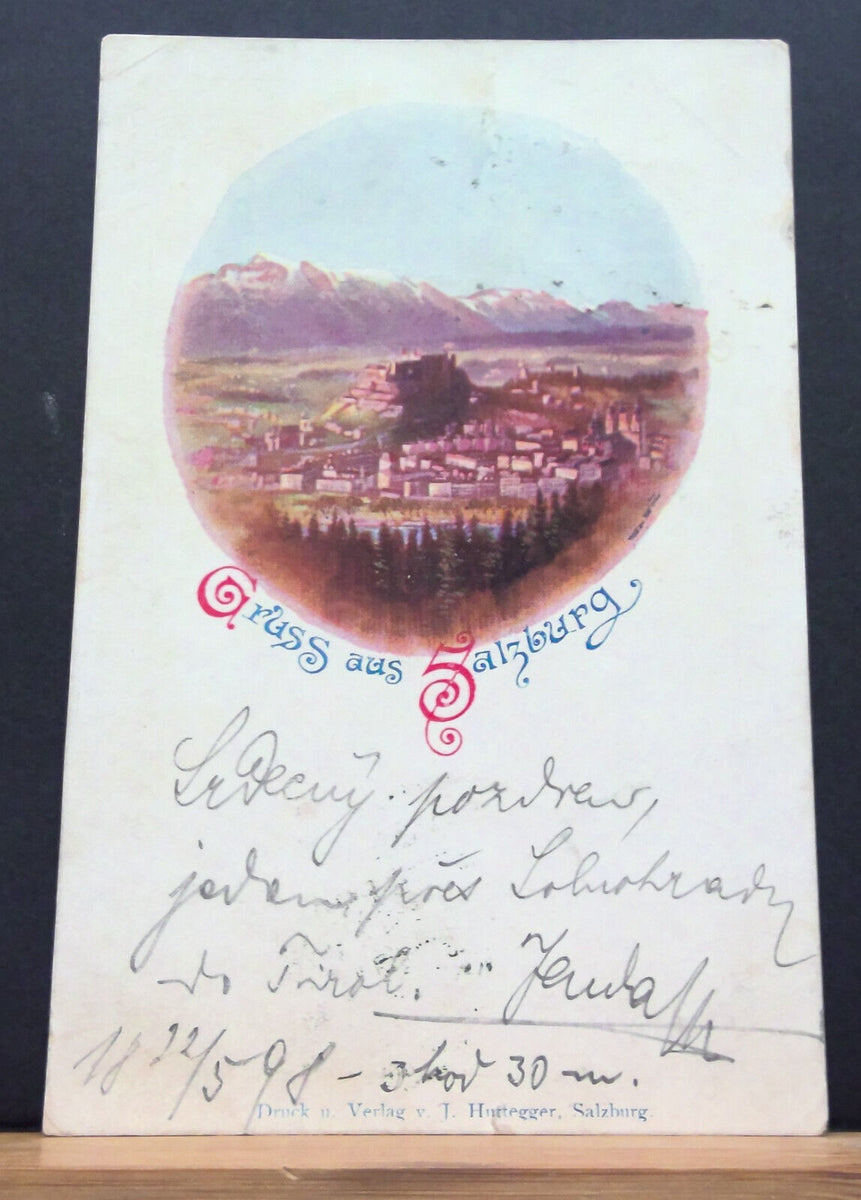 Gruss aus Salzburg
Srdečný pozdrav,
jedem přes Solnohrady
do Tirol. Jenda
18 22/5 98 – 3 hod 30 m.
Druck u. Verlag v. J. Huttegger, Salzburg.